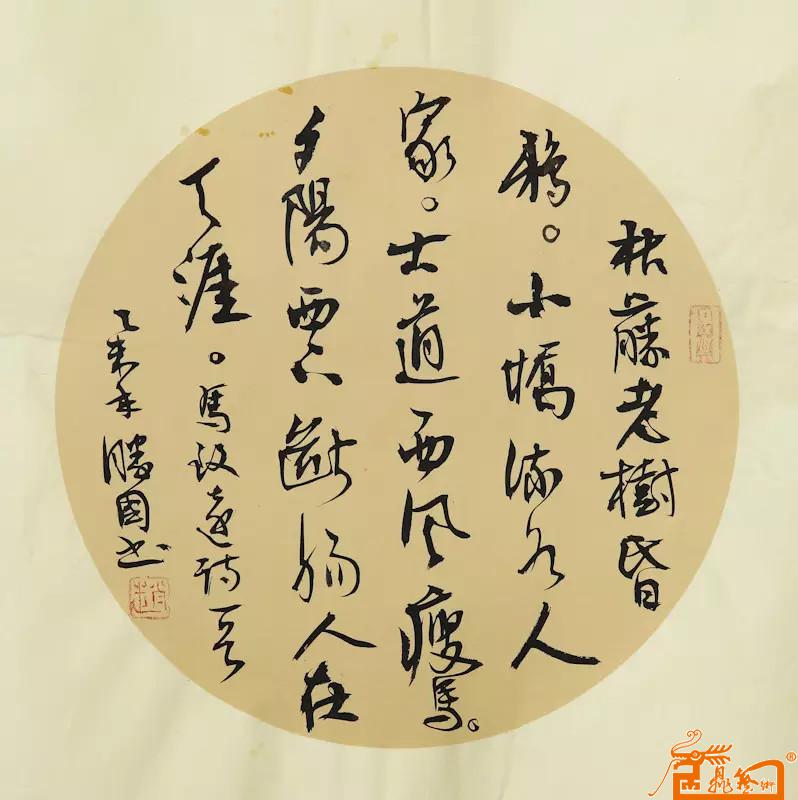 枯藤老樹昏
鴉。小橋流水人
家。古道西風瘦馬。
夕陽西下斷腸人在
天涯。馬致遠詩一首
乙未年勝國書